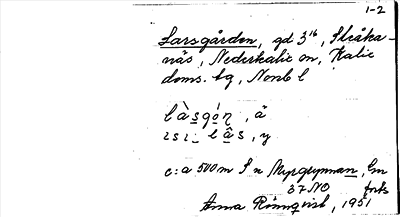 1-2
Larsgården, gd 3¹⁶, Slråka-
näs, Nederkalix sn, Kalix
doms. tg, Nonb l
làsgón, å
ısı lâs, y
c:a 500 m S n Nysgrynnan, Gm
37 NO
Anna Rönnqvist, 1951